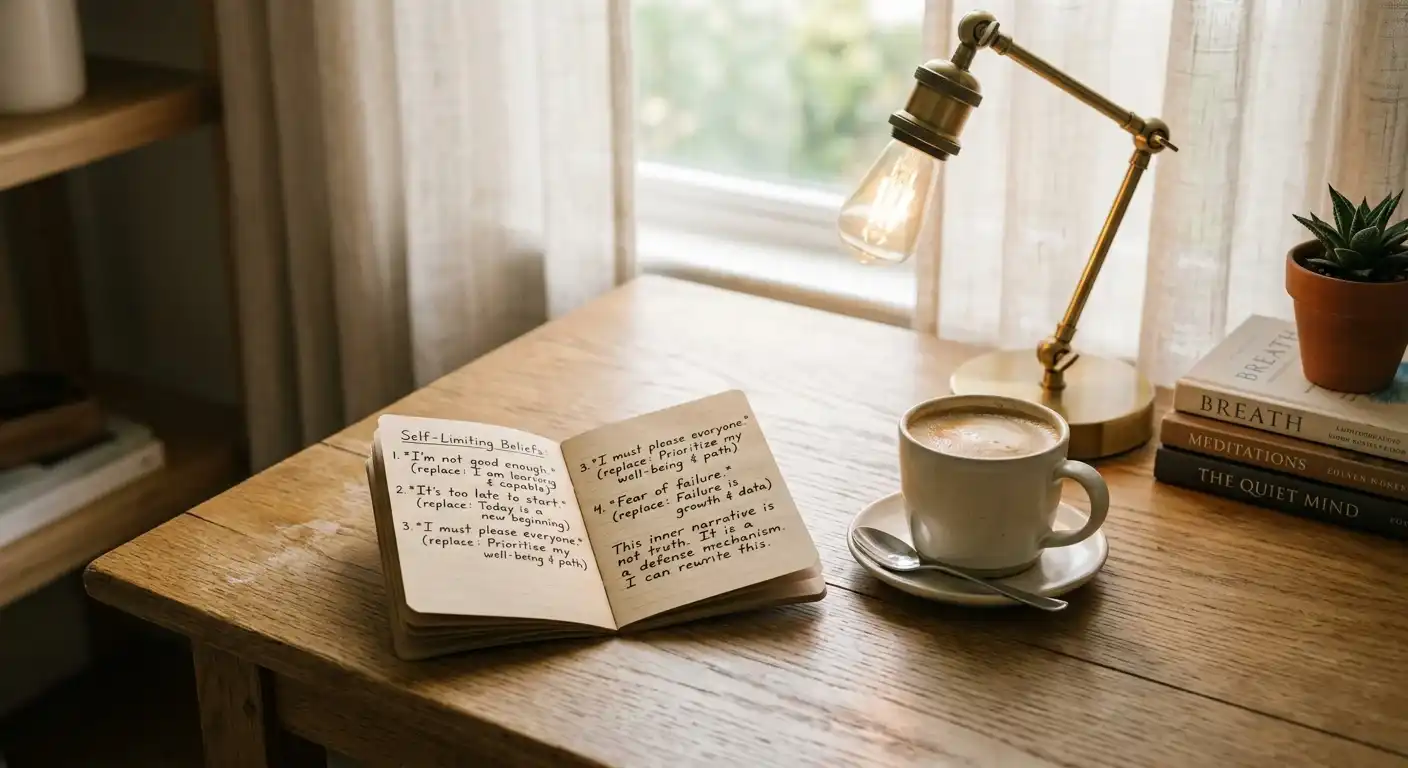 Self-Limiting Beliefs:
1. "I'm not good enough."
(replace: I am learning
& capable)
2. "It's too late to start."
(replace: Today is a
new beginning)
3. "I must please everyone."
(replace: Prioritise my
well-being & path)
3. "I must please everyone."
(replace: Prioritize my
well-being & path)
4. "Fear of failure."
(replace: Failure is
growth & data)
This inner narrative is
not truth. It is a
a defense mechanism.
I can rewrite this.
BREATH
BREATH
MEDITATIONS
THE QUIET MIND